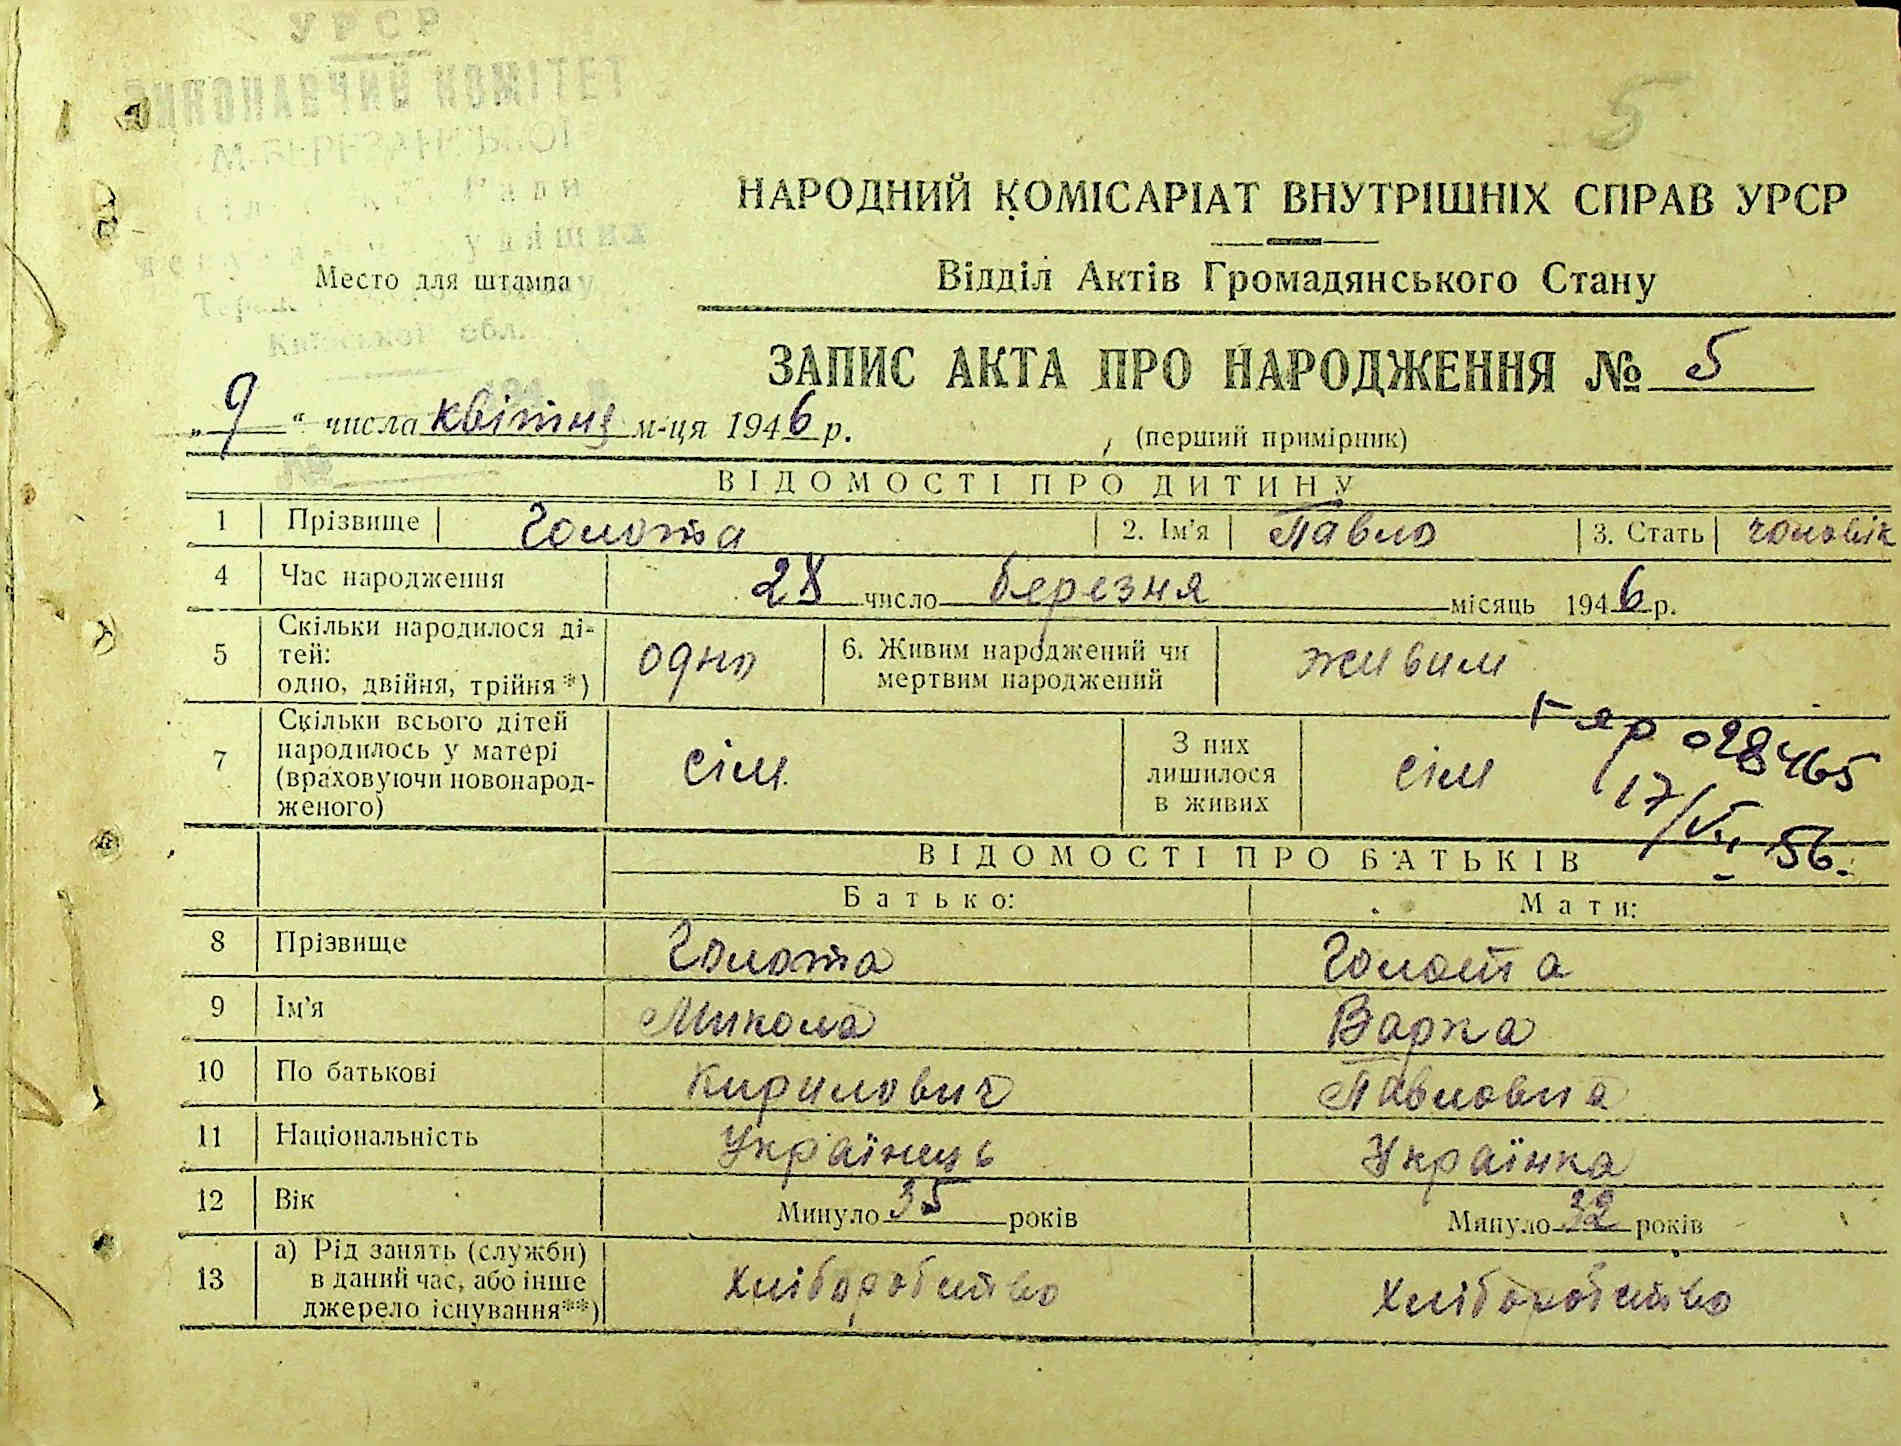 УРСР
ВИКОНАВЧИЙ КОМІТЕТ
М-БЕРЕЗАНСЬКОЇ
Ради
Київської обл.
5
Место для штампа
НАРОДНИЙ КОМІСАРІАТ ВНУТРІШНІХ СПРАВ УРСР
Відділ Актів Громадянського Стану
ЗАПИС АКТА ПРО НАРОДЖЕННЯ № 5
„9“ числа квітня м-ця 1946 р.
(перший примірник)
№
ВІДОМОСТІ ПРО ДИТИНУ
1 Прізвище Голота 2. Ім'я Павло 3. Стать чоловік
4 Час народження 28 число березня місяць 1946 р.
5 Скільки народилося ді-
тей:
одно, двійня, трійня*) одно 6. Живим народжений чи
мертвим народжений живим
7 Скільки всього дітей
народилось у матері
(враховуючи новонарод-
женого) сім З них
лишилося
в живих сім
028465
17/VII 56.
ВІДОМОСТІ ПРО БАТЬКІВ
Батько: Мати:
8 Прізвище Голота Голота
9 Ім'я Микола Варка
10 По батькові Кирилович Павловна
11 Національність Українець Українка
12 Вік Минуло 35 років Минуло 32 років
13 а) Рід занять (служби)
в даний час, або інше
джерело існування**) Хліборобство Хліборобство